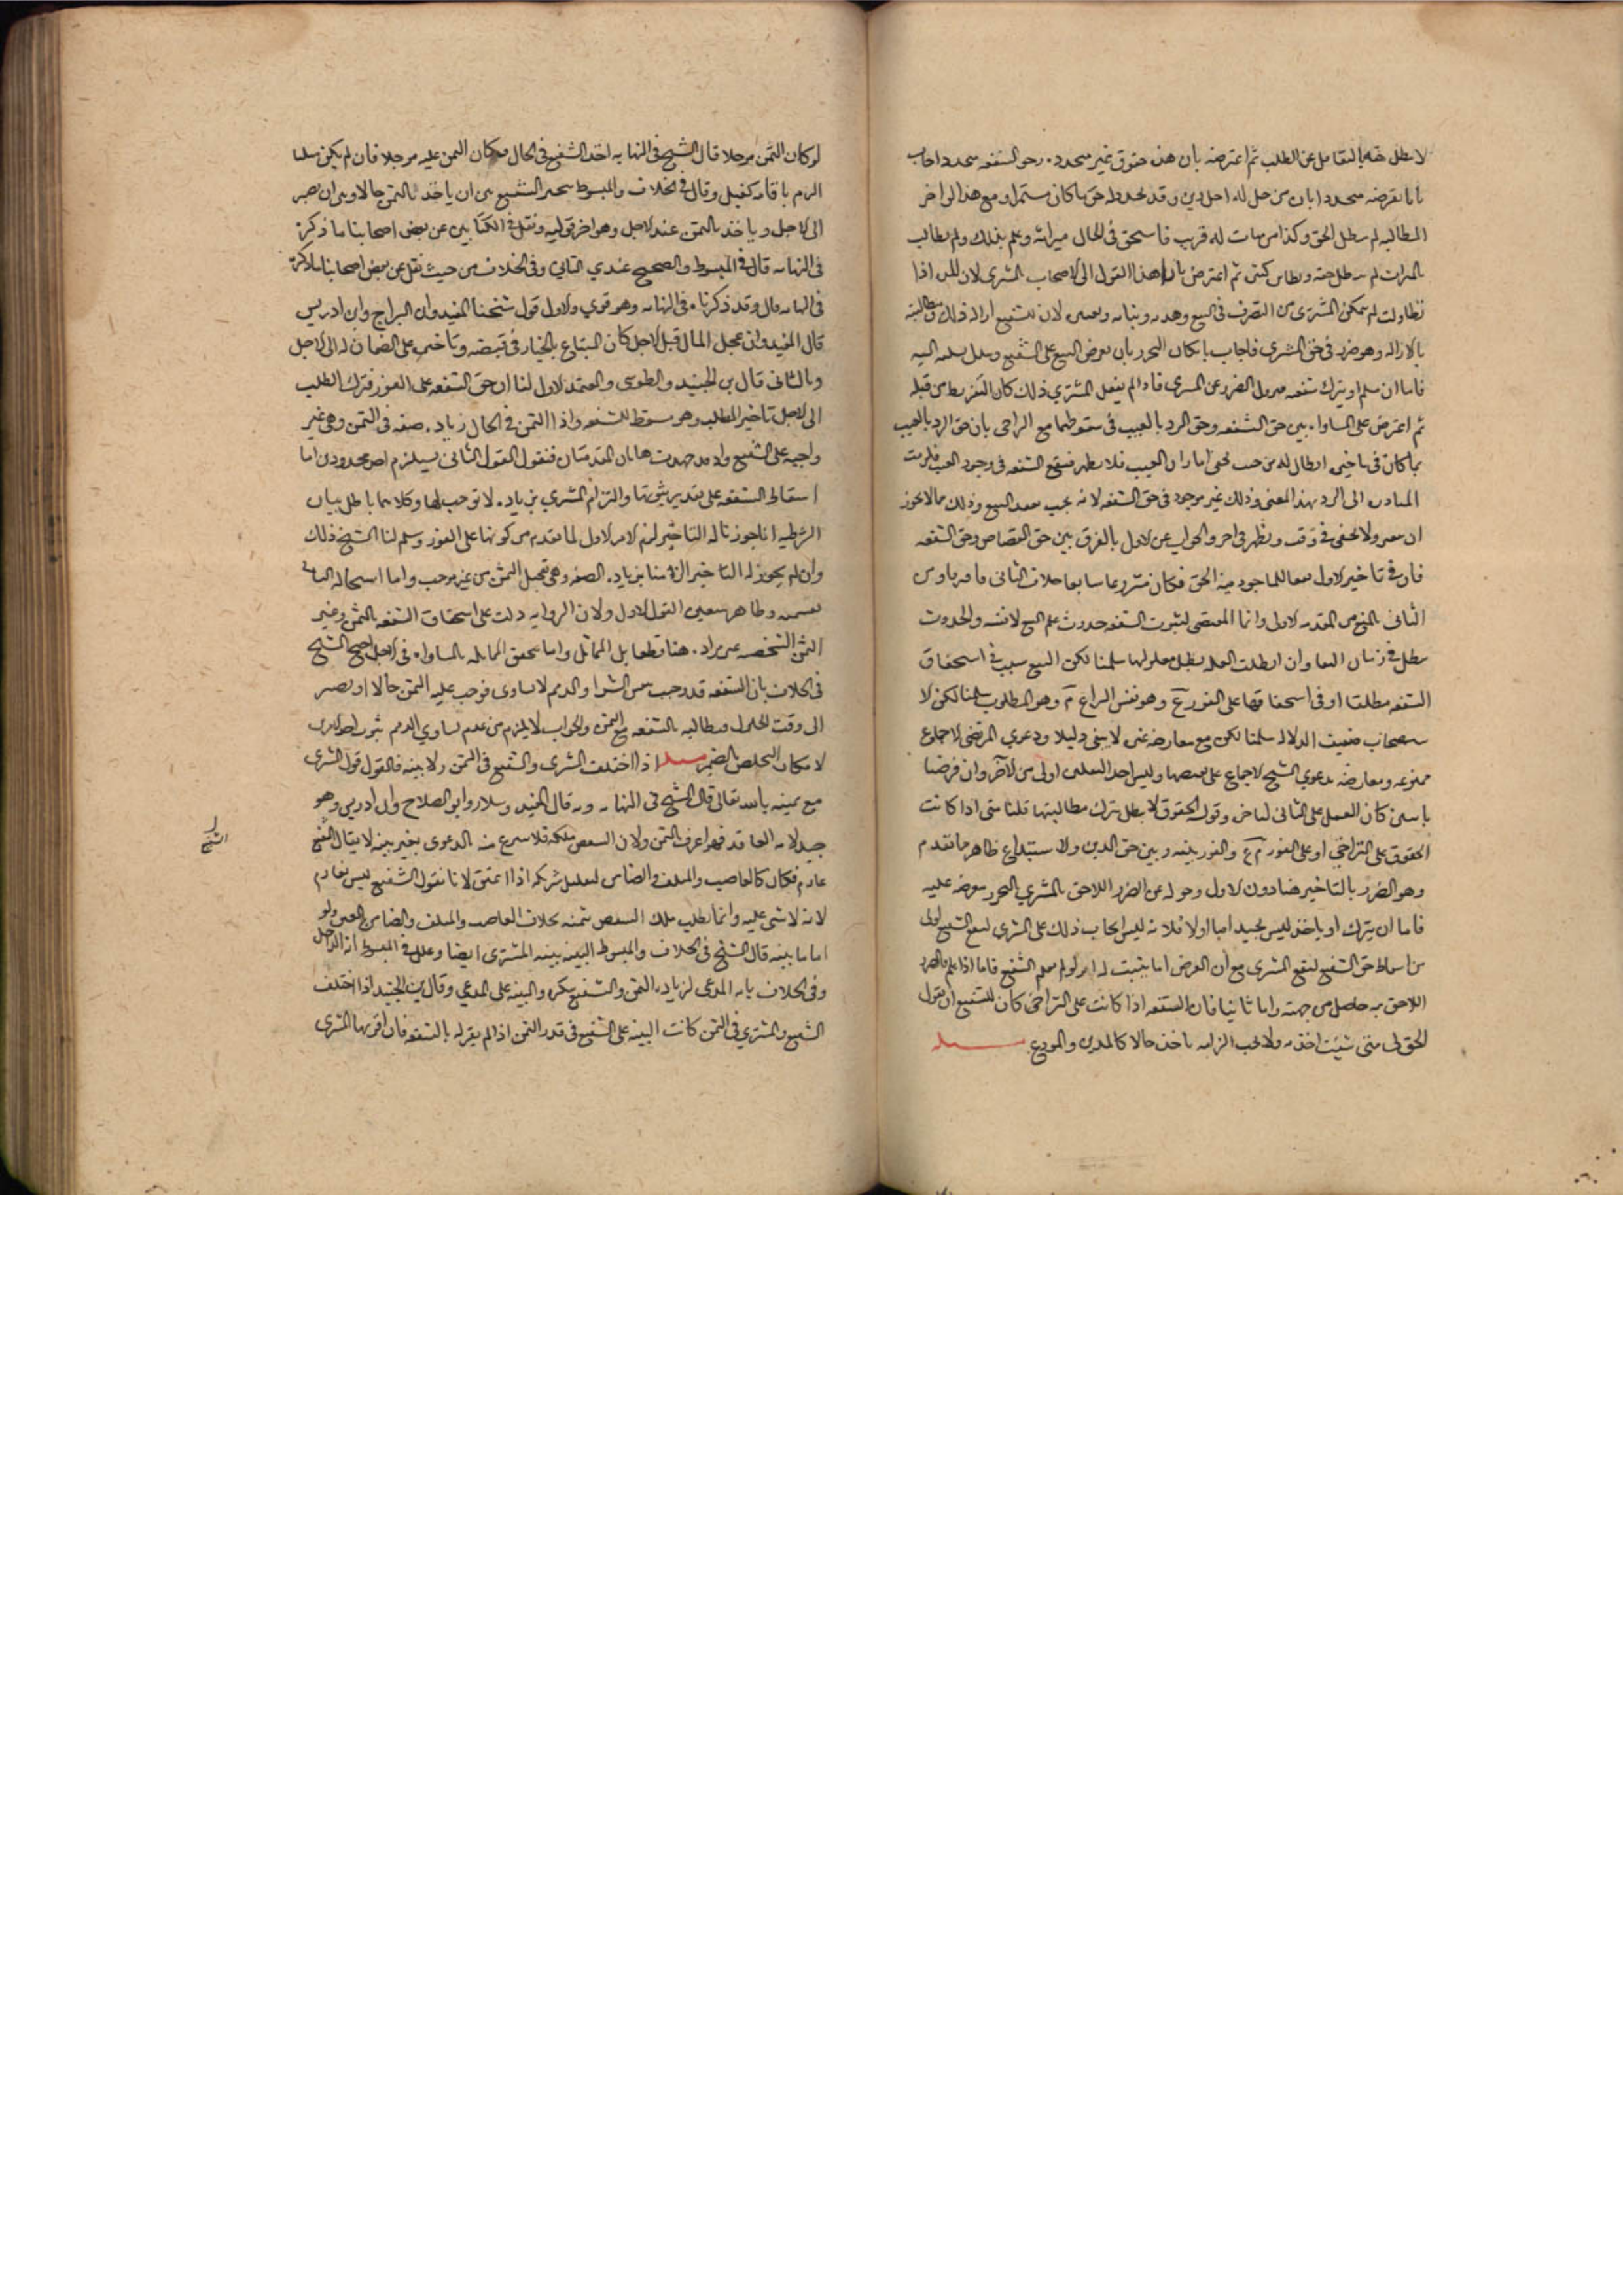 لا يبطل حقه بالتغافل عن الطلب ثم اعترضه بان هذه حقوق غير متجددة وحق الشفعة متجدد اجاب
بانا نفرضه متجددا بان من حل له اجل دين وقد تجدد له حق ما كان مستمرا ومع هذا لو اخر
المطالبة لم يبطل الحق وكذا من مات له قريب فاستحق في الحال ميراثه وعلم بذلك ولم يطالب
بالميراث لم يبطل حقه ونظائره كثيرة ثم اعترض بان هذا القول الى الاضحاب المشتري لان المدة اذا
تطاولت لم يمكن المشتري من التصرف في المبيع وهدمه وبنائه لان للشفيع ازالة ذلك ومطالبته
بالازالة وهو ضرر في حق المشتري فاجاب بامكان التحرز بان يعرض المبيع على الشفيع وبذل تسليمه اليه
فاما ان يتسلم او يترك شفعته فيزول الضرر عن المشتري فاذا لم يفعل المشتري ذلك كان التفريط من قبله
ثم اعترض على المساواة بين حق الشفعة وحق الرد بالعيب في سقوطهما مع التراخي بان حق الرد بالعيب
المبادرة الى الرد بهذا المعنى وذلك غير موجود في حق الشفعة لانه يجب بعقد البيع وذلك مما لا يجوز
ان يتغير ولا يخفى في وقت ويظهر في اخر والجواب عن الاول بالفرق بين حق القصاص وحق الشفعة
فان في تاخير الاول نفعا للماخوذ منه الحق فكان مشروعا سايغا بخلاف الثاني
الثاني بالمنع من المقدمة الاولى وانما المقتضي لثبوت الشفعة حدوث علم البيع لا نفسه والحدوث
يبطل في زمان البقا وان ابطلت العلة بطل معلولها سلمنا لكن البيع سبب في استحقاق
الشفعة مطلقا او في استحقاقها على الفور ع م وهو نفس النزاع م وهو المطلوب سلمنا لكن لا
ستصحاب ضعيف الدلالة سلمنا لكن مع معارضة غيره لا يبقى دليلا ودعوى المرتضى الاجماع
ممنوعة ومعارضة بدعوى الشيخ الاجماع على نقيضها وليس احد النقلين اولى من الاخر وان فرضنا
كان العمل على الثاني لتاخره وقوله الحقوق لا تبطل بترك مطالبتها قلنا متى اذا كانت
الحقوق على التراخي او على الفور م ع والفرق بينه وبين حق الدين والاستيداع ظاهر ما تقدم
وهو الضرر بالتاخير هنا دون الاول وجوابه عن الضرر اللاحق بالمشتري بالتحرز بعرضه عليه
فاما ان يترك او ياخذ ليس بجيد اما اولا فلانه ليس ايجاب ذلك على المشتري لنفع الشفيع اولى
من اسقاط حق الشفيع لنفع المشتري مع ان العرض انما يثبت له لو لم يعلم الشفيع فاما اذا علم فالضرر
اللاحق به حاصل من جهته واما ثانيا فان الشفعة اذا كانت على التراخي كان للشفيع ان يقول
الحق لي متى شئت اخذته ولا يجب الزامه باخذه حالا كالمدين والمودع مسئلة
لو كان الثمن مؤجلا قال الشيخ في النهاية اخذ الشفيع في الحال وكان الثمن عليه مؤجلا فان لم يكن مليا
الزم باقامة كفيل وقال في الخلاف والمبسوط يتخير الشفيع بين ان ياخذه بالثمن حالا وبين ان يصبر
الى الاجل وياخذه بالثمن عند الاجل وهو اخر قوليه ونقل في الكتابين عن بعض اصحابنا ما ذكره
في النهاية قال في المبسوط والصحيح عندي الثاني وفي الخلاف من حيث نقل عن بعض اصحابنا ما ذكره
في النهاية قال وقد ذكرناه في النهاية وهو قوي والاول قول شيخنا المفيد وابن البراج وابن ادريس
قال المفيد وان عجل المال قبل الاجل كان المبتاع بالخيار في قبضه وتاخيره على الضمان له الى الاجل
وبالثاني قال بن الجنيد والطوسي والمعتمد الاول لنا ان حق الشفعة على الفور فترك الطلب
الى الاجل تاخير للطلب وهو مسقط للشفعة واداء الثمن في الحال زيادة صفة في الثمن وهي غير
واجبة على الشفيع واذا تمهدت هاتان المقدمتان فنقول القول الثاني يستلزم احد محذورين اما
اسقاط الشفعة على تقدير ثبوتها والتزام المشتري بزيادة لا توجب لها وكلاهما باطل بيان
الشرطية انا جوزنا له التاخير لزم الامر الاول لما تقدم من كونها على الفور وسلم لنا الشيخ ذلك
وان لم يجوز له التاخير الزمنا بزيادة الصفة وهي تعجيل الثمن من غير موجب واما استحالة التالي
بقسميه وظاهر فتعين القول الاول ولان الرواية دلت على استحقاق الشفعة بالثمن وغير
الثمن الشخصية غير مرادة هنا قطعا بل المماثل وانما تتحقق المماثلة بالمساواة في الاجل احتج الشيخ
في الخلاف بان الشفعة قد وجبت بنفس الشرا والذمم لا تساوى فوجب عليه الثمن حالا او يصبر
الى وقت الحلول فيطالب بالشفعة مع الثمن والجواب لا يلزم من عدم تساوي الذمم ثبوت احد الامرين
لامكان التخلص بالضمين مسئلة اذا اختلف المشتري والشفيع في الثمن ولا بينة فالقول قول المشتري
مع يمينه بالله تعالى قاله الشيخ في النهاية وبه قال المفيد وسلار وابو الصلاح وابن ادريس وهو
جيد لانه العاقد فهو اعرف بالثمن ولان الشقص ملكه فلا ينزع منه بالدعوى بغير بينة لا يقال الشفيع
غارم فكان كالغاصب والمتلف والضامن لنصيب شريكه اذا اعتق لانا نقول الشفيع ليس بغارم
لانه لا شي عليه وانما يطلب ملك الشقص بثمنه بخلاف الغاصب والمتلف والضامن المعتق ولو
اقاما بينة قال الشيخ في الخلاف والمبسوط البينة بينة المشتري ايضا وعلل في المبسوط انه الداخل
وفي الخلاف بانه المدعي لزيادة الثمن والشفيع ينكره والبينة على المدعي وقال بن الجنيد اذا اختلف
الشفيع والمشتري في الثمن كانت البينة على الشفيع في قدر الثمن اذا لم يقر له بالشفعة فان اقر بها المشتري
الشيخ